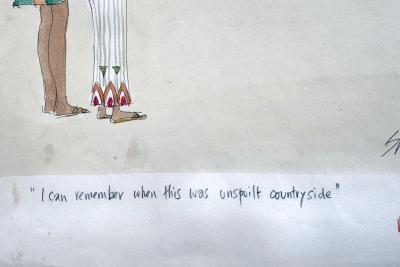 "I can remember when this was unspoilt countryside"